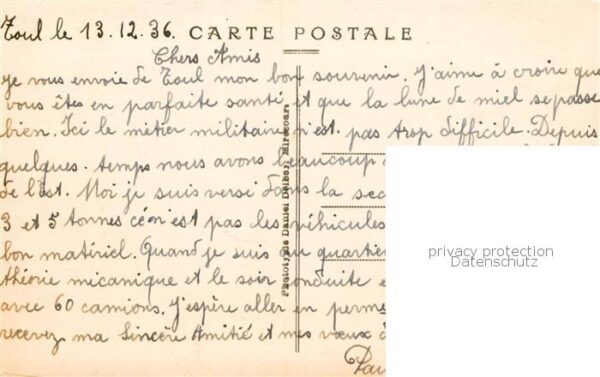 Toul le 13.12.36. CARTE POSTALE
Chers Amis
Je vous envoie de Toul mon bon souvenir. J'aime à croire que
vous êtes en parfaite santé et que la lune de miel se passe
bien. Ici le métier militaire n'est pas trop difficile. Depuis
quelques. temps nous avons beaucoup
de l'est. Moi je suis versé dans la sec
3 et 5 tonnes ce n'est pas les véhicules
bon matériel. Quand je suis au quartier
théorie mécanique et le soir conduite
avec 60 camions. J'espère aller en perme
recevez ma Sincère Amitié et mes vœux
Photographie Daniel Delboy, Mirecourt
privacy protection
Datenschutz